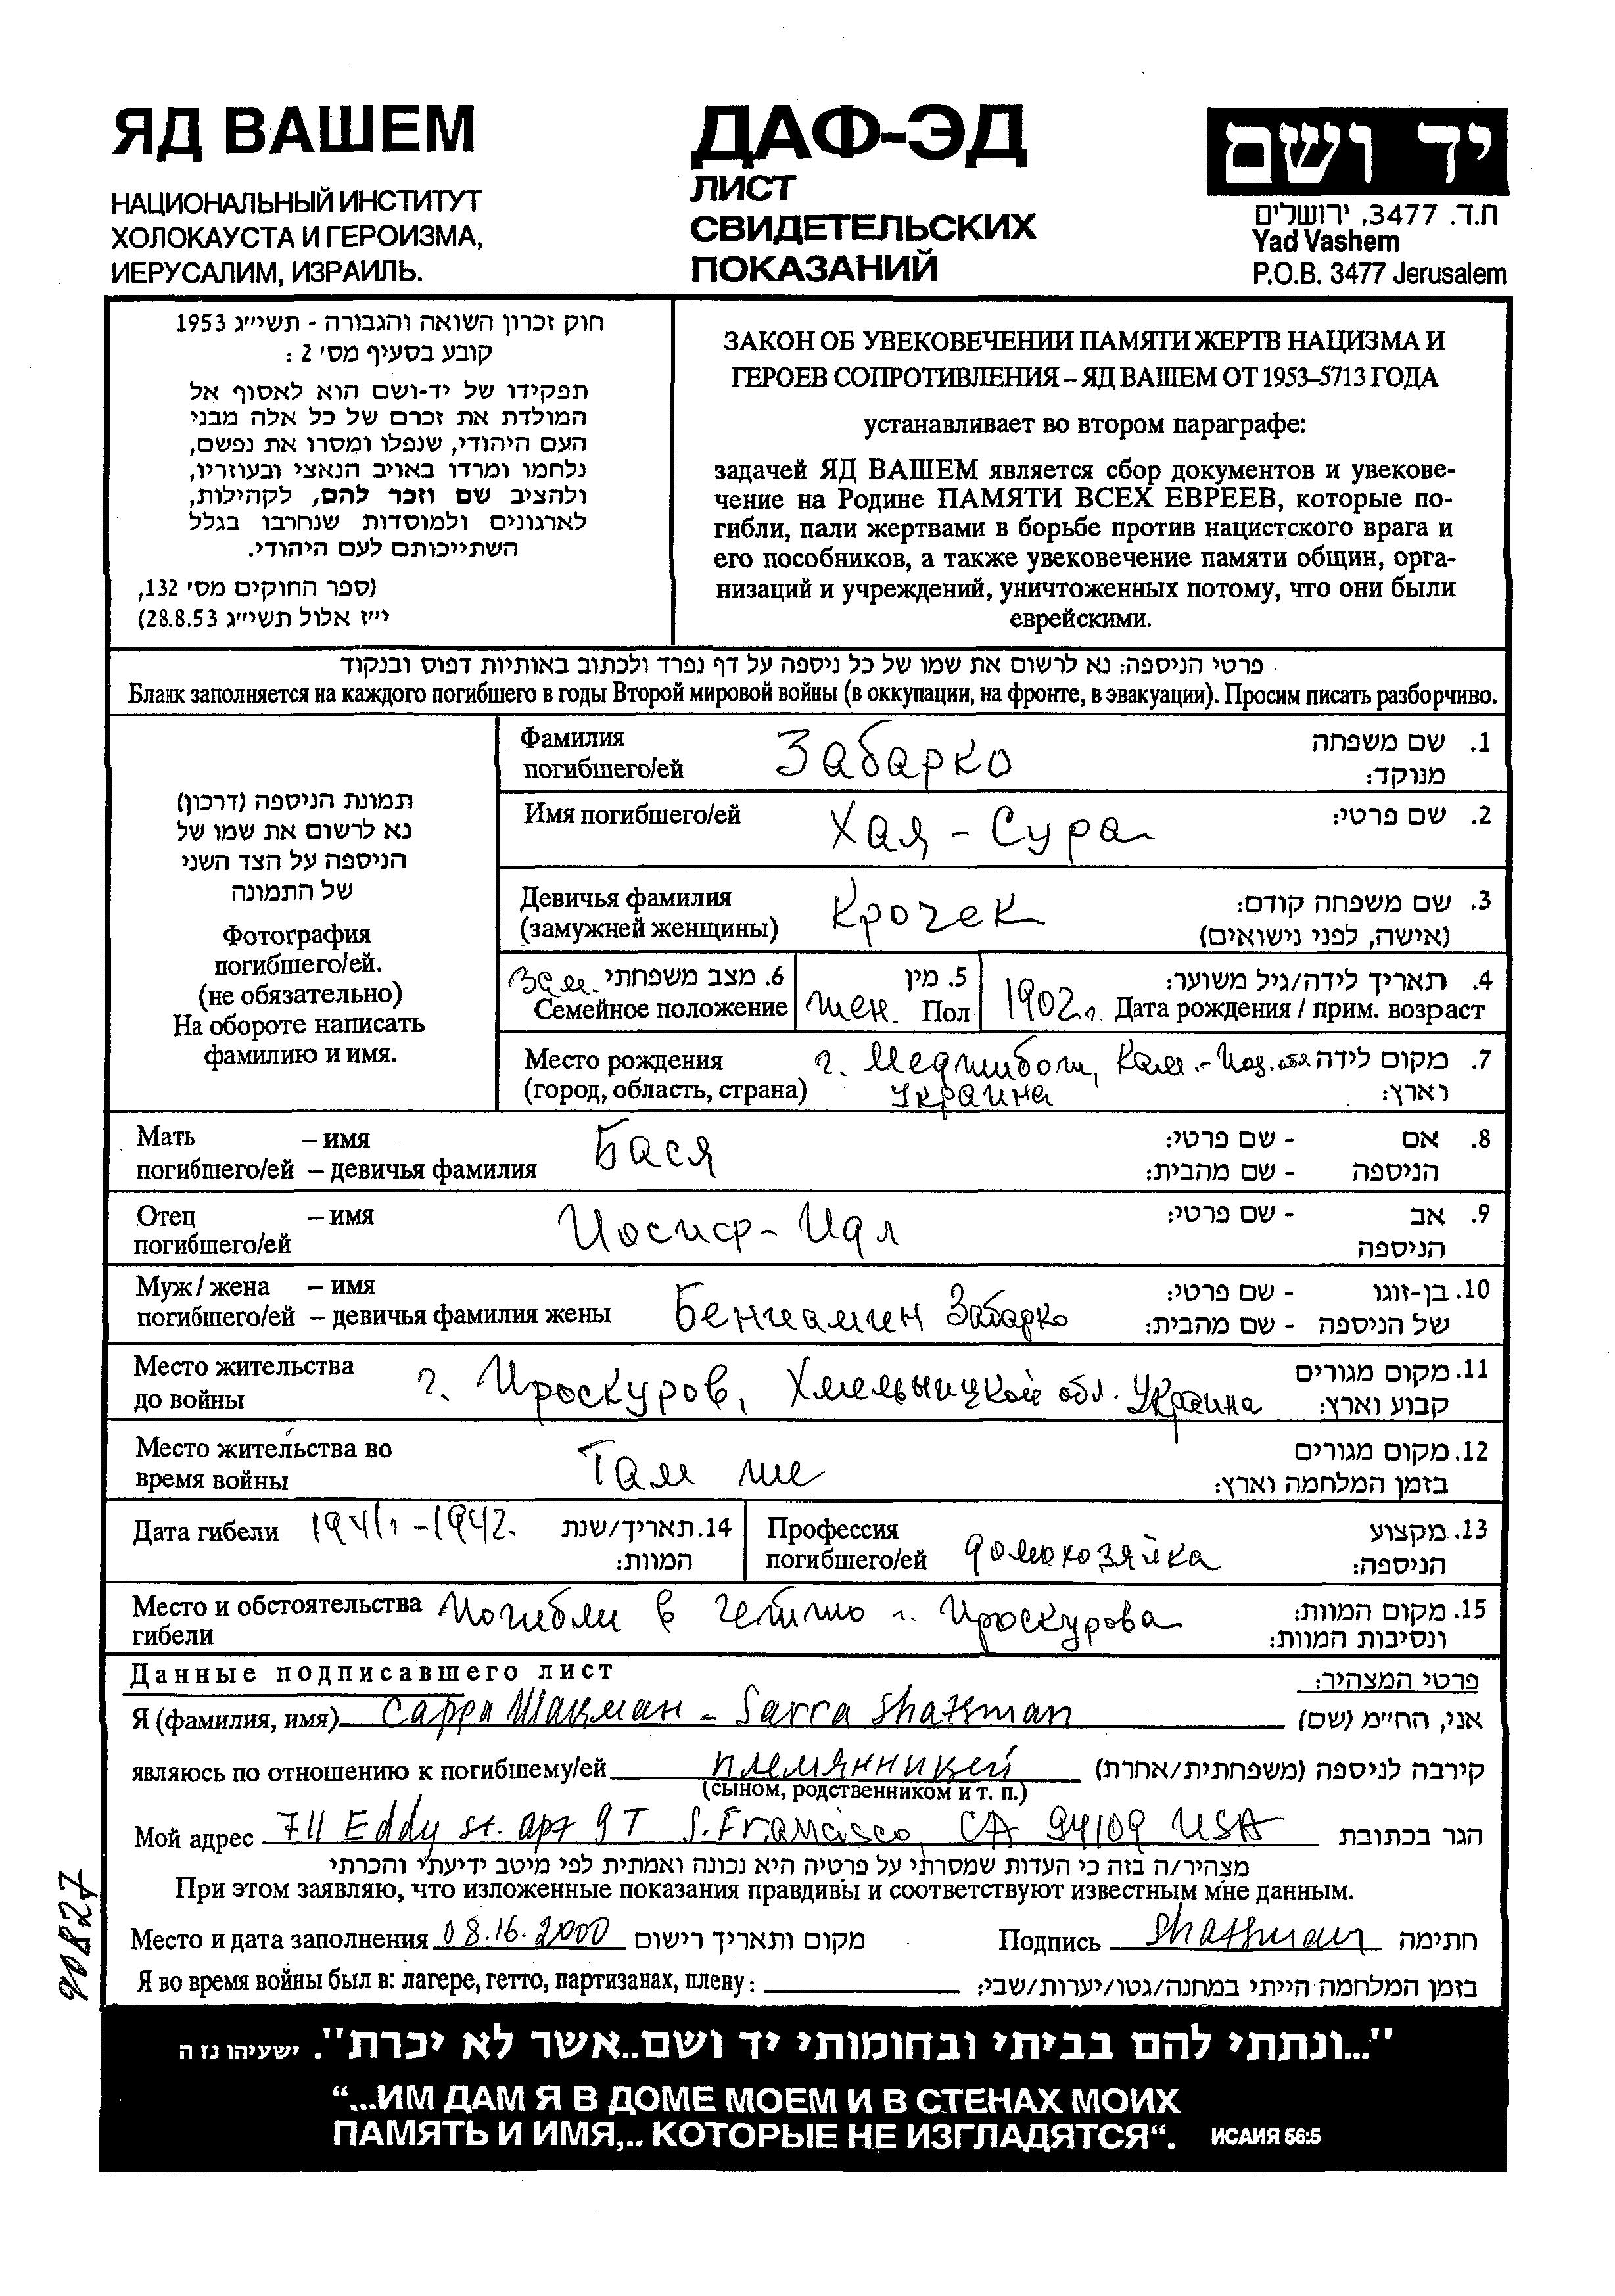 ЯД ВАШЕМ
НАЦИОНАЛЬНЫЙ ИНСТИТУТ
ХОЛОКАУСТА И ГЕРОИЗМА,
ИЕРУСАЛИМ, ИЗРАИЛЬ.
ДАФ-ЭД
ЛИСТ
СВИДЕТЕЛЬСКИХ
ПОКАЗАНИЙ
יד ושם
ת.ד. 3477, ירושלים
Yad Vashem
P.O.B. 3477 Jerusalem
חוק זכרון השואה והגבורה - תשי״ג 1953
קובע בסעיף מס׳ 2 :
תפקידו של יד-ושם הוא לאסוף אל
המולדת את זכרם של כל אלה מבני
העם היהודי, שנפלו ומסרו את נפשם,
נלחמו ומרדו באויב הנאצי ובעוזריו,
ולהציב שם וזכר להם, לקהילות,
לארגונים ולמוסדות שנחרבו בגלל
השתייכותם לעם היהודי.
(ספר החוקים מס׳ 132,
י״ז אלול תשי״ג 28.8.53)
ЗАКОН ОБ УВЕКОВЕЧЕНИИ ПАМЯТИ ЖЕРТВ НАЦИЗМА И
ГЕРОЕВ СОПРОТИВЛЕНИЯ – ЯД ВАШЕМ ОТ 1953–5713 ГОДА
устанавливает во втором параграфе:
задачей ЯД ВАШЕМ является сбор документов и увекове-
чение на Родине ПАМЯТИ ВСЕХ ЕВРЕЕВ, которые по-
гибли, пали жертвами в борьбе против нацистского врага и
его пособников, а также увековечение памяти общин, орга-
низаций и учреждений, уничтоженных потому, что они были
еврейскими.
פרטי הניספה: נא לרשום את שמו של כל ניספה על דף נפרד ולכתוב באותיות דפוס ובנקוד
Бланк заполняется на каждого погибшего в годы Второй мировой войны (в оккупации, на фронте, в эвакуации). Просим писать разборчиво.
תמונת הניספה (דרכון)
נא לרשום את שמו של
הניספה על הצד השני
של התמונה
Фотография
погибшего/ей.
(не обязательно)
На обороте написать
фамилию и имя.
Фамилия погибшего/ей Забарко 1. שם משפחה מנוקד:
Имя погибшего/ей Хая - Сура 2. שם פרטי:
Девичья фамилия (замужней женщины) Крочек 3. שם משפחה קודם: (אישה, לפני נישואים)
Зам. 6. מצב משפחתי Семейное положение
жен. 5. מין Пол
1902г. 4. תאריך לידה/גיל משוער: Дата рождения / прим. возраст
Место рождения г. Меджибош, Кам.-Под. обл. 7. מקום לידה
(город, область, страна) Украина וארץ:
Мать – имя Бася 8. אם - שם פרטי:
погибшего/ей – девичья фамилия הניספה - שם מהבית:
Отец – имя Иосиф - Идл 9. אב - שם פרטי:
погибшего/ей הניספה
Муж / жена – имя 10. בן-זוגו - שם פרטי:
погибшего/ей – девичья фамилия жены Бениамин Забарко של הניספה - שם מהבית:
Место жительства до войны г. Проскуров, Хмельницкой обл. Украина 11. מקום מגורים קבוע וארץ:
Место жительства во время войны Там же 12. מקום מגורים בזמן המלחמה וארץ:
Дата гибели 1941г - 1942. 14. תאריך/שנת המוות:
Профессия погибшего/ей домохозяйка 13. מקצוע הניספה:
Место и обстоятельства гибели Погибли в гетто г. Проскурова 15. מקום המוות: ונסיבות המוות:
Данные подписавшего лист פרטי המצהיר:
Я (фамилия, имя) Сарра Шацман - Sarra Shatsman אני, הח״מ (שם)
являюсь по отношению к погибшему/ей племянницей קירבה לניספה (משפחתית/אחרת)
(сыном, родственником и т. п.)
Мой адрес 711 Eddy st. apt 9T S. Francisco, CA 94109 USA הגר בכתובת
מצהיר/ה בזה כי העדות שמסרתי על פרטיה היא נכונה ואמתית לפי מיטב ידיעתי והכרתי
При этом заявляю, что изложенные показания правдивы и соответствуют известным мне данным.
Место и дата заполнения 08.16.2000 מקום ותאריך רישום Подпись Shatsman חתימה
Я во время войны был в: лагере, гетто, партизанах, плену: בזמן המלחמה הייתי במחנה/גטו/יערות/שבי:
90827
"...ונתתי להם בביתי ובחומותי יד ושם..אשר לא יכרת". ישעיהו נז ה
“...ИМ ДАМ Я В ДОМЕ МОЕМ И В СТЕНАХ МОИХ
ПАМЯТЬ И ИМЯ,.. КОТОРЫЕ НЕ ИЗГЛАДЯТСЯ“. ИСАИЯ 56:5